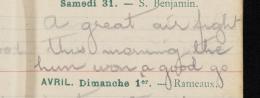 Samedi 31. — S. Benjamin.
A great air fight
this morning the
hun won a good go
AVRIL. Dimanche 1er. — Rameaux.